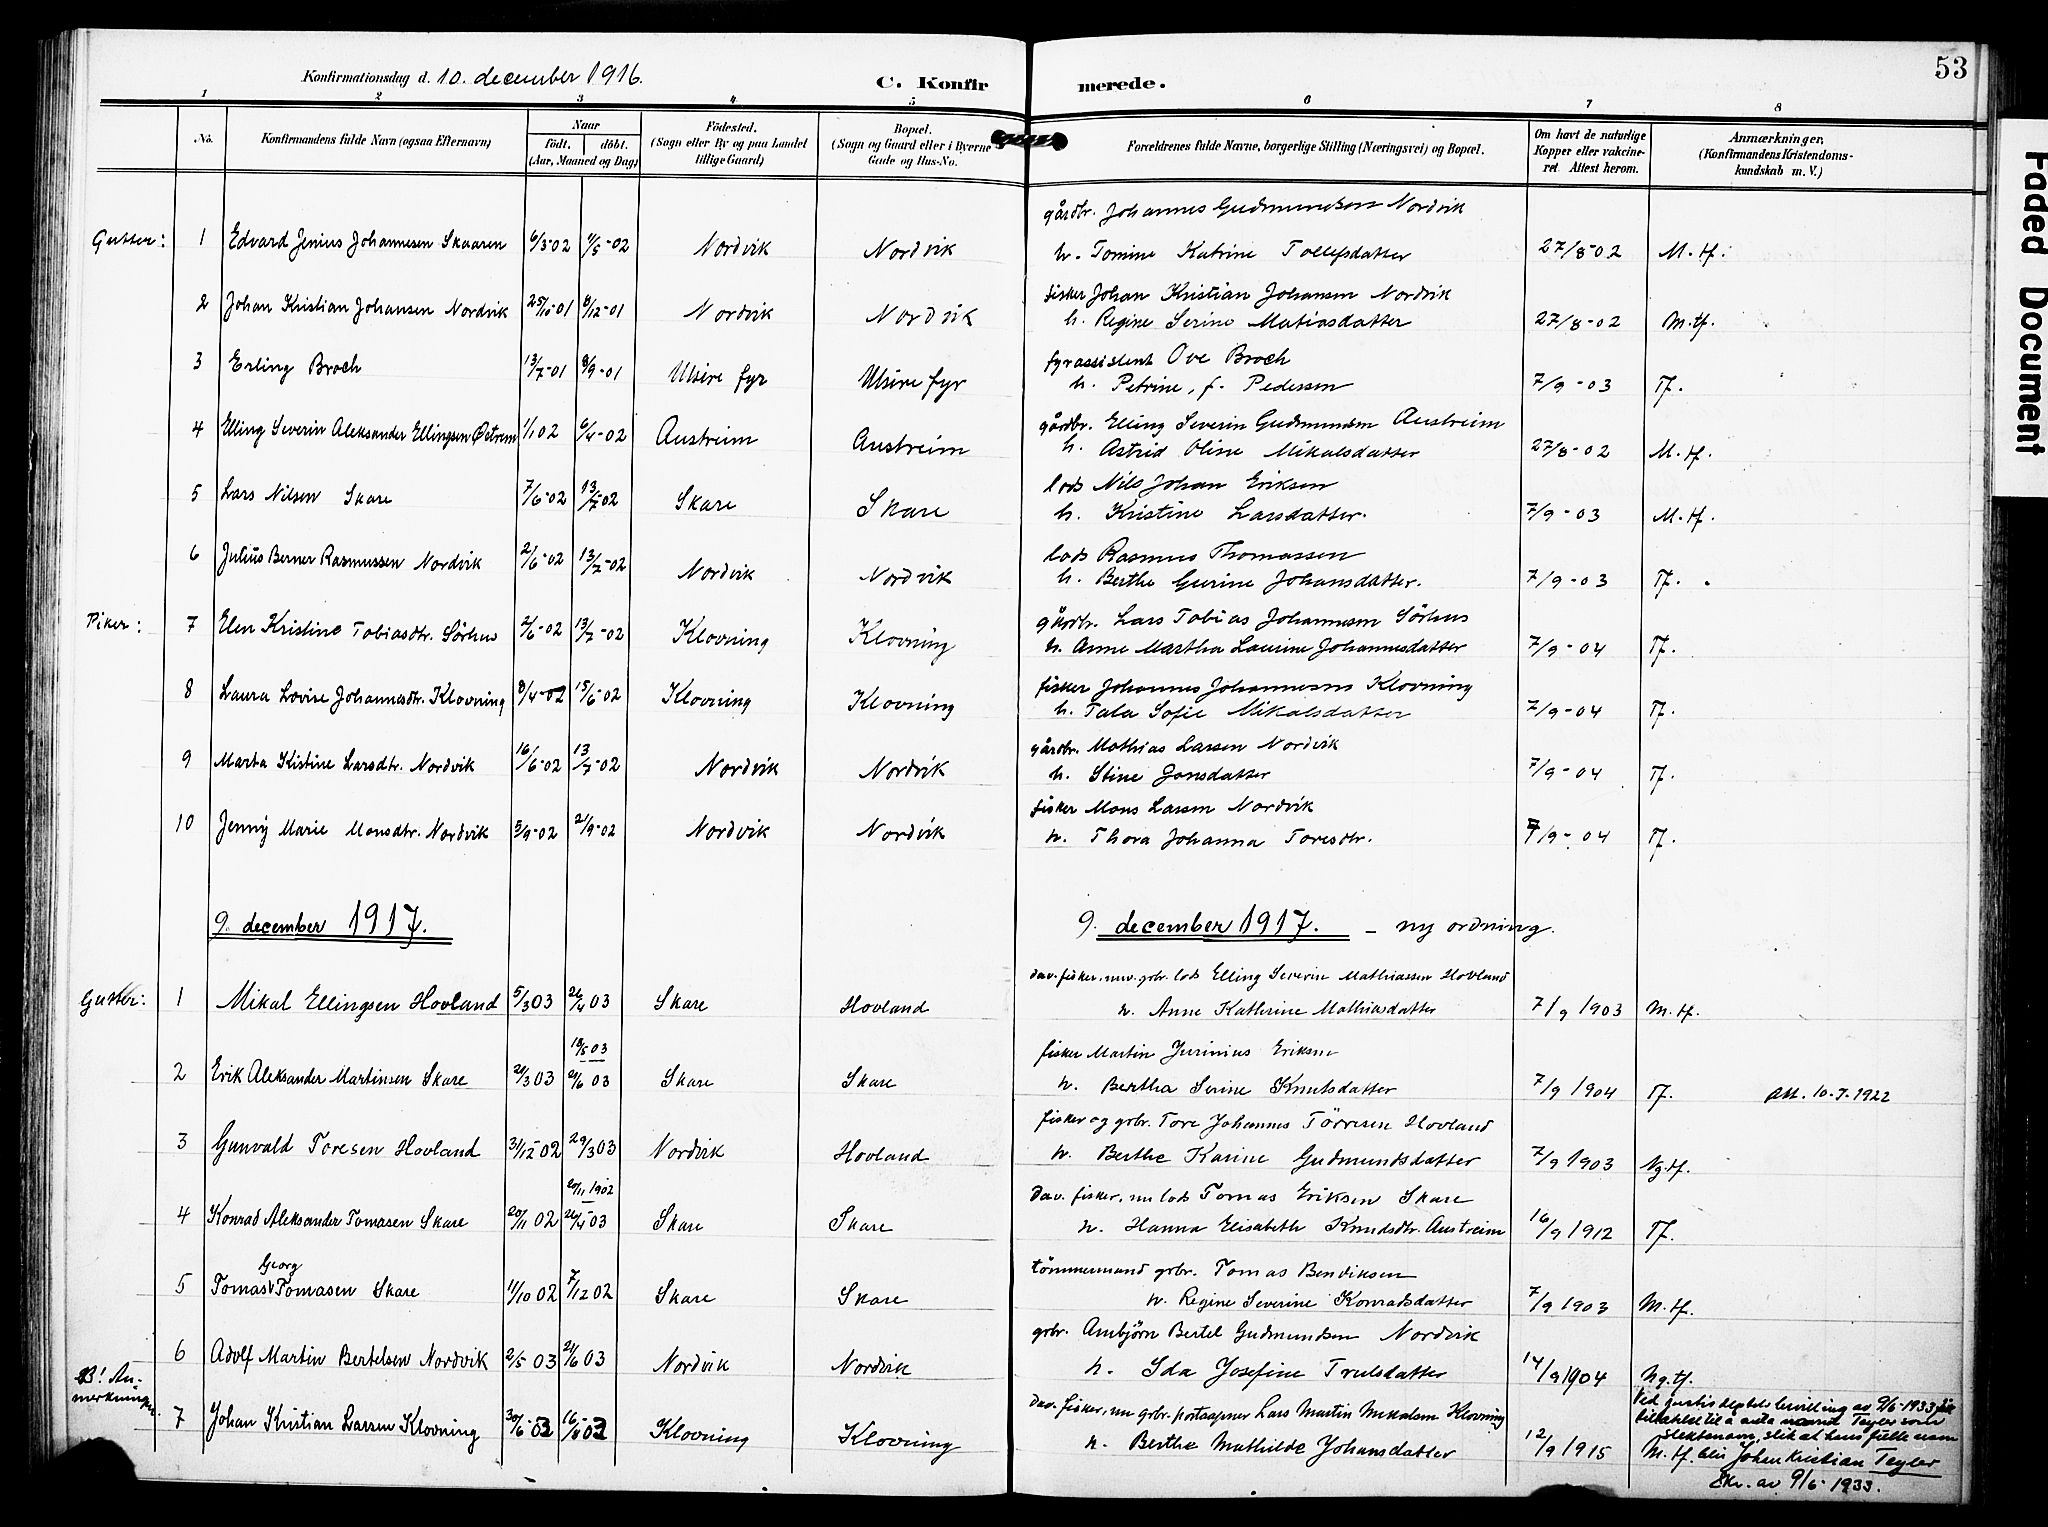 53
Konfirmationsdag d. 10. december 1916.
C. Konfirmerede.
1 2 3 4 5 6 7 8
No. Konfirmandens fulde Navn (ogsaa Efternavn) Naar født. døbt. (Aar, Maaned og Dag) Fødested. (Sogn eller By og paa Landet tillige Gaard) Bopæl. (Sogn og Gaard eller i Byerne Gade og Hus-No. Forældrenes fulde Navne, borgerlige Stilling (Næringsvei) og Bopæl. Om havt de naturlige Kopper eller vakcineret Attest herom. Anmærkninger. (Konfirmandens Kristendomskundskab m. V.)
gårdbr. Johannes Gudmundsen Nordvik
Gutter: 1 Edvard Jenius Johannesen Skaaren 6/3-02 4/5-02 Nordvik Nordvik h. Tomine Katrine Tollefsdatter 27/8-02 M.tf.
fisker Johan Kristian Johansen Nordvik
2 Johan Kristian Johansen Nordvik 25/10-01 8/12-01 Nordvik Nordvik h. Regine Serine Matiasdatter 27/8-02 M.tf.
fyrassistent Ove Broch
3 Erling Broch 13/7-01 8/9-01 Utsire fyr Utsire fyr h. Petrine, f. Pedersen 7/9-03 Tf.
gårdbr. Elling Severin Gudmundsen Austreim
4 Elling Severin Aleksander Ellingsen Østrem 1/1 02 6/4-02 Austreim Austreim h. Astrid Oline Mikalsdatter 27/8-02 M.tf.
lods Nils Johan Eriksen
5 Lars Nilsen Skare 7/6-02 13/7-02 Skare Skare h. Kristine Larsdatter. 7/9-03 M.tf.
lods Rasmus Thomassen
6 Julius Berner Rasmussen Nordvik 2/6-02 13/7-02 Nordvik Nordvik h. Berthe Gurine Johansdatter. 7/9-03 Tf.
gårdbr. Lars Tobias Johannesen Sörhus
Piker: 7 Elen Kristine Tobiasdtr. Sörhus 2/6-02 13/7-02 Klovning Klovning h. Anne Martha Laurine Johannesdatter 7/9-04 Tf.
fisker Johannes Johannesen Klovning
8 Laura Lovise Johannesdtr. Klovning 8/4-02 15/6-02 Klovning Klovning h. Tala Sofie Mikalsdatter 7/9-04 Tf.
gårdbr. Mathias Larsen Nordvik
9 Marta Kistine Larsdtr. Nordvik 16/6-02 13/7-02 Nordvik Nordvik h. Stine Jonsdatter 7/9-04 Tf.
fisker Mons Larsen Nordvik
10 Jenny Marie Monsdtr. Nordvik 5/9-02 21/9-02 Nordvik Nordvik h. Thora Johanna Toresdtr. 7/9-04 Tf.
9. december 1917. 9. december 1917. - ny ordning.
dav. fisker, nuv. gbr. lods Elling Severin Mathiassen Hovland
Gutter: 1 Mikal Ellingsen Hovland 5/3 03 26/4 03 Skare Hovland h. Anne Kathrine Mathiasdatter 7/9 1903 M.tf.
18/5 03 fisker Martin Jurinius Eriksen
2 Erik Aleksander Martinsen Skare 29/3 03 21/6 03 Skare Skare h. Bertha Serine Knutsdatter 7/9 1904 Tf. Att. 10-7-1922
fisker og gbr. Tore Johannes Törresen Hovland
3 Gunvald Toresen Hovland 31/12 02 29/3 03 Nordvik Hovland h. Berthe Karine Gudmundsdatter 7/9 1903 Ng.tf.
20/11 1902 Dav. fisker, nu lods Tomas Eriksen Skare
4 Konrad Aleksander Tomasen Skare 20/11 02 26/4-03 Skare Skare h. Hanna Elisabeth Knudsdtr. Austreim 16/9 1912 Tf.
Georg tömmermand gbr. Tomas Bendiksen
5 Tomas Tomasen Skare 11/10 02 7/12 02 Skare Skare h. Regine Severine Konradsdatter 7/9 1903 M.tf.
gbr. Ambjörn Bertel Gudmundsen Nordvik
6 Adolf Martin Bertelsen Nordvik 2/5 03 21/6 03 Nordvik Nordvik h. Ida Josefine Trulsdatter 14/9 1904 Ng.tf.
NB! Anmerkningen. Dav. fisker, nu gbr. postaapner Lars Martin Mikalsen Klovning Ved justisdeptets bevilling av 9/6-1933 til
7 Johan Kristian Larsen Klovning 30/6-03 16/8-03 Klovning Klovning h. Berthe Mathilde Johansdatter 12/9 1915 M.tf.
tillatelse til å anta navnet Teyler som
slektsnavn, slik at hans fulle navn
blir Johan Kristian Teyler
Skr. av 9/6-1933.
Faded Document